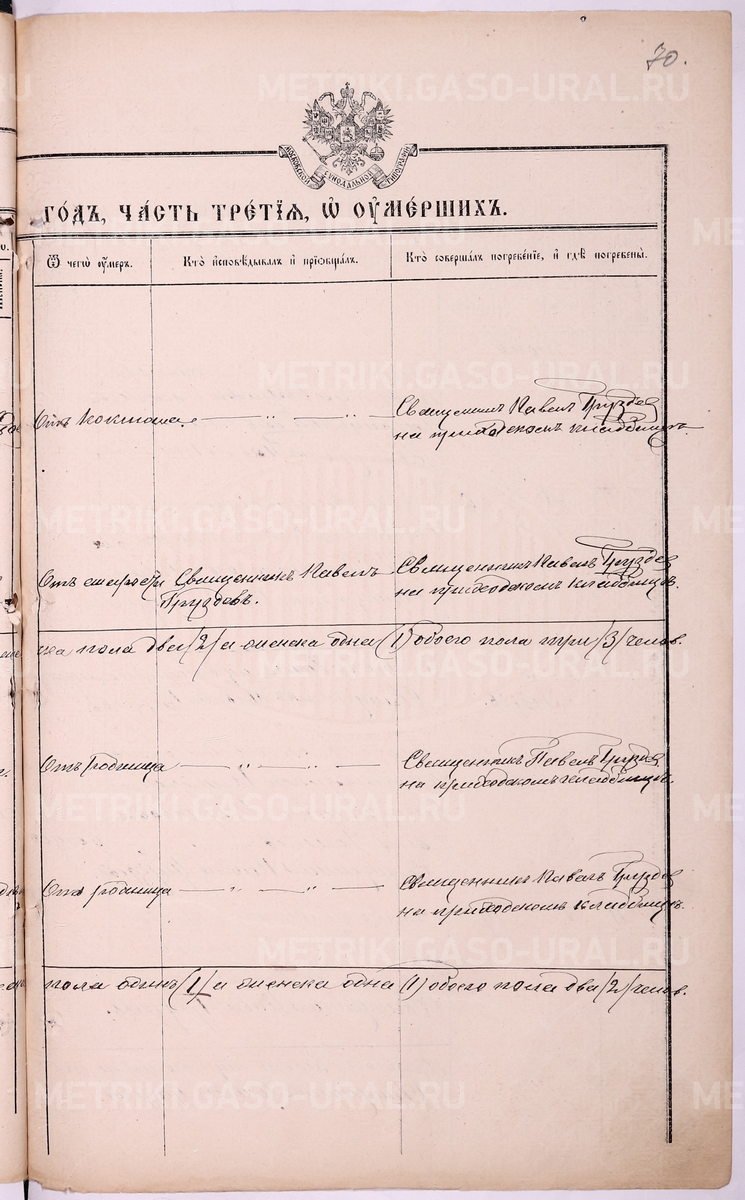 70.
МОСКОВСКОЙ СѴНОДАЛЬНОЙ ТИПОГРАФІИ
го́дъ, ча́сть тре́тїѧ, ѡ҆ ᲂу҆ме́ршихъ.
Ѿ чегѡ̀ ᲂу҆́меръ.
Кто̀ и҆сповѣ́дывалъ и҆ прїѡбща́лъ.
Кто̀ соверша́лъ погребе́нїе, и҆ гдѣ̀ погребены̀.
Отъ коклюша
Священникъ Павелъ Груздев
на приходскомъ кладбищѣ.
Отъ старости
Священникъ Павелъ
Груздевъ.
Священникъ Павелъ Груздев
на приходскомъ кладбищѣ.
пола два /2/ а женска одна (1) обоего пола три /3/ челов.
Отъ родимца
Священникъ Павелъ Груздев
на приходскомъ кладбищѣ.
Отъ родимца
Священникъ Павелъ Груздев
на приходскомъ кладбищѣ.
пола одинъ (1) а женска одна (1) обоего пола два /2/ челов.
METRIKI.GASO-URAL.RU